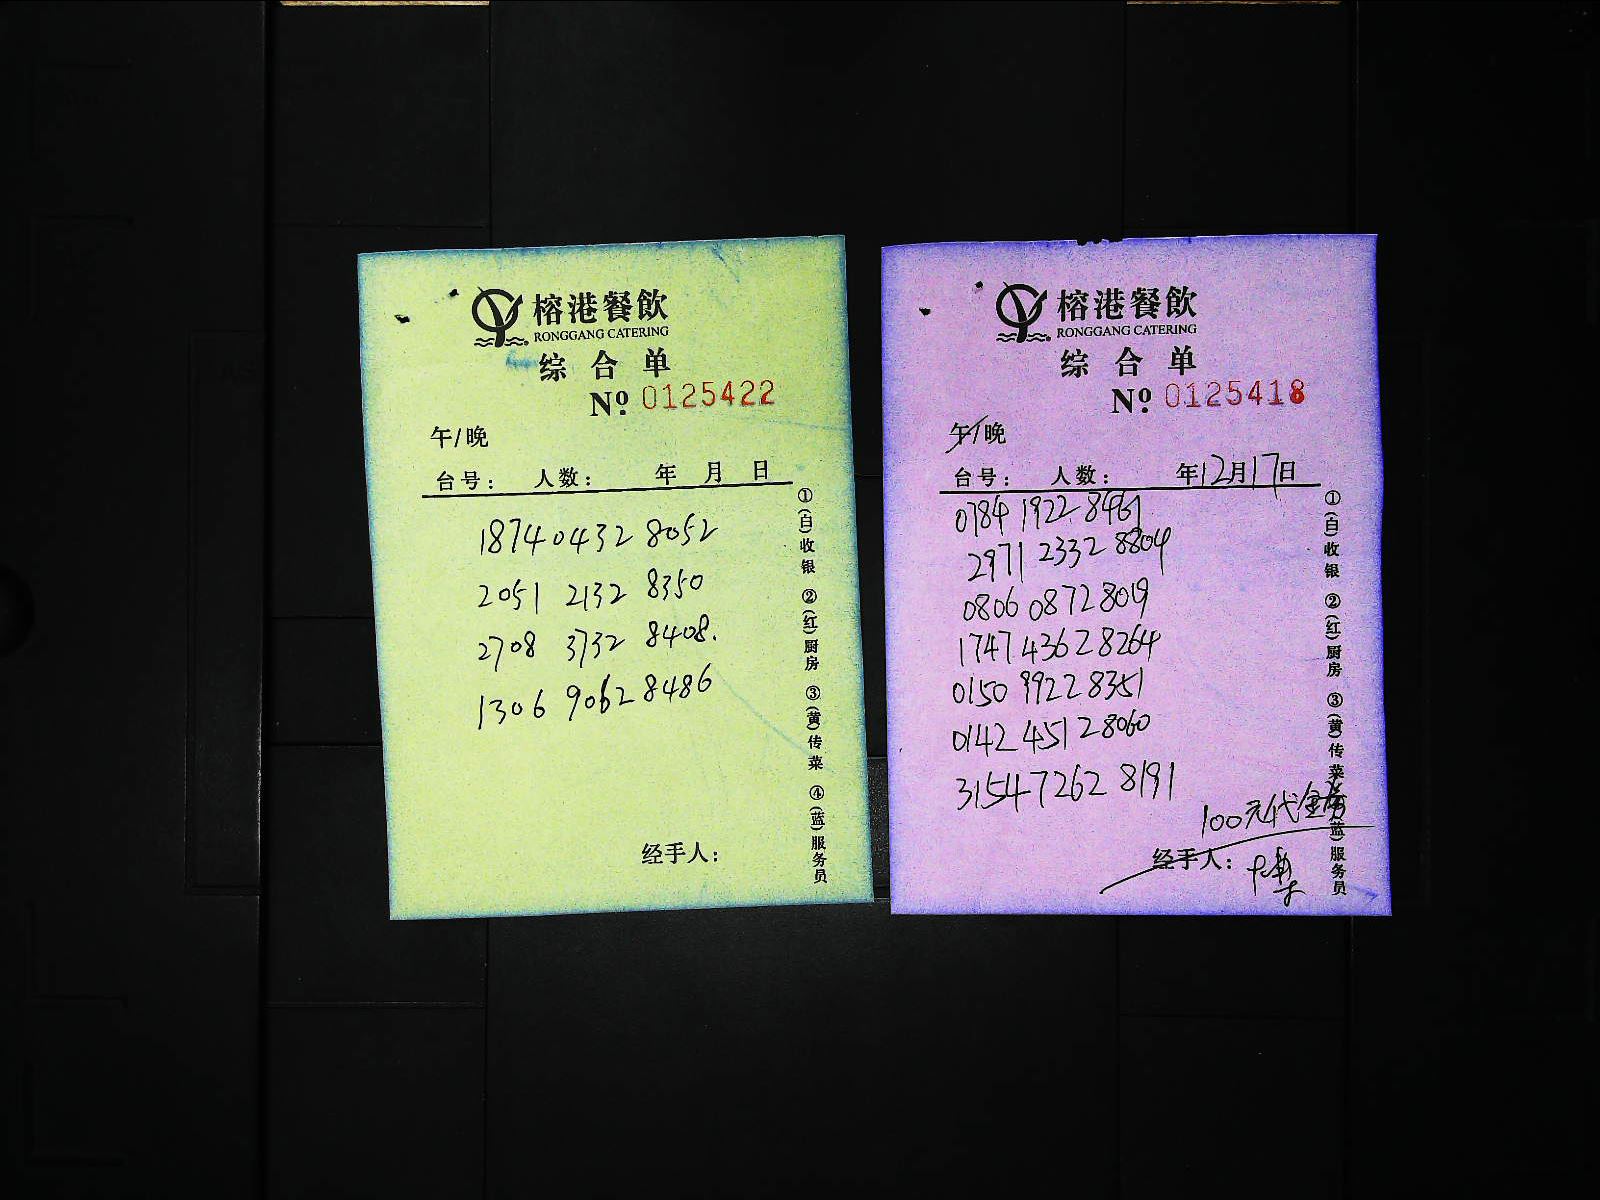 榕港餐飲
RONGGANG CATERING
综合单
Nº 0125422
午/晚
台号： 人数： 年 月 日
1874 0432 8052
2051 2132 8350
2708 3732 8408.
1306 9062 8486
经手人：
①(白)收银 ②(红)厨房 ③(黄)传菜 ④(蓝)服务员
榕港餐飲
RONGGANG CATERING
综合单
Nº 0125418
午/晚
台号： 人数： 年12月17日
0784 1922 8461
2971 2332 8804
0806 0872 8019
1747 4362 8264
0150 9922 8351
0142 4512 8060
3154 7262 8191
100元代金券
经手人：
①(白)收银 ②(红)厨房 ③(黄)传菜 (蓝)服务员